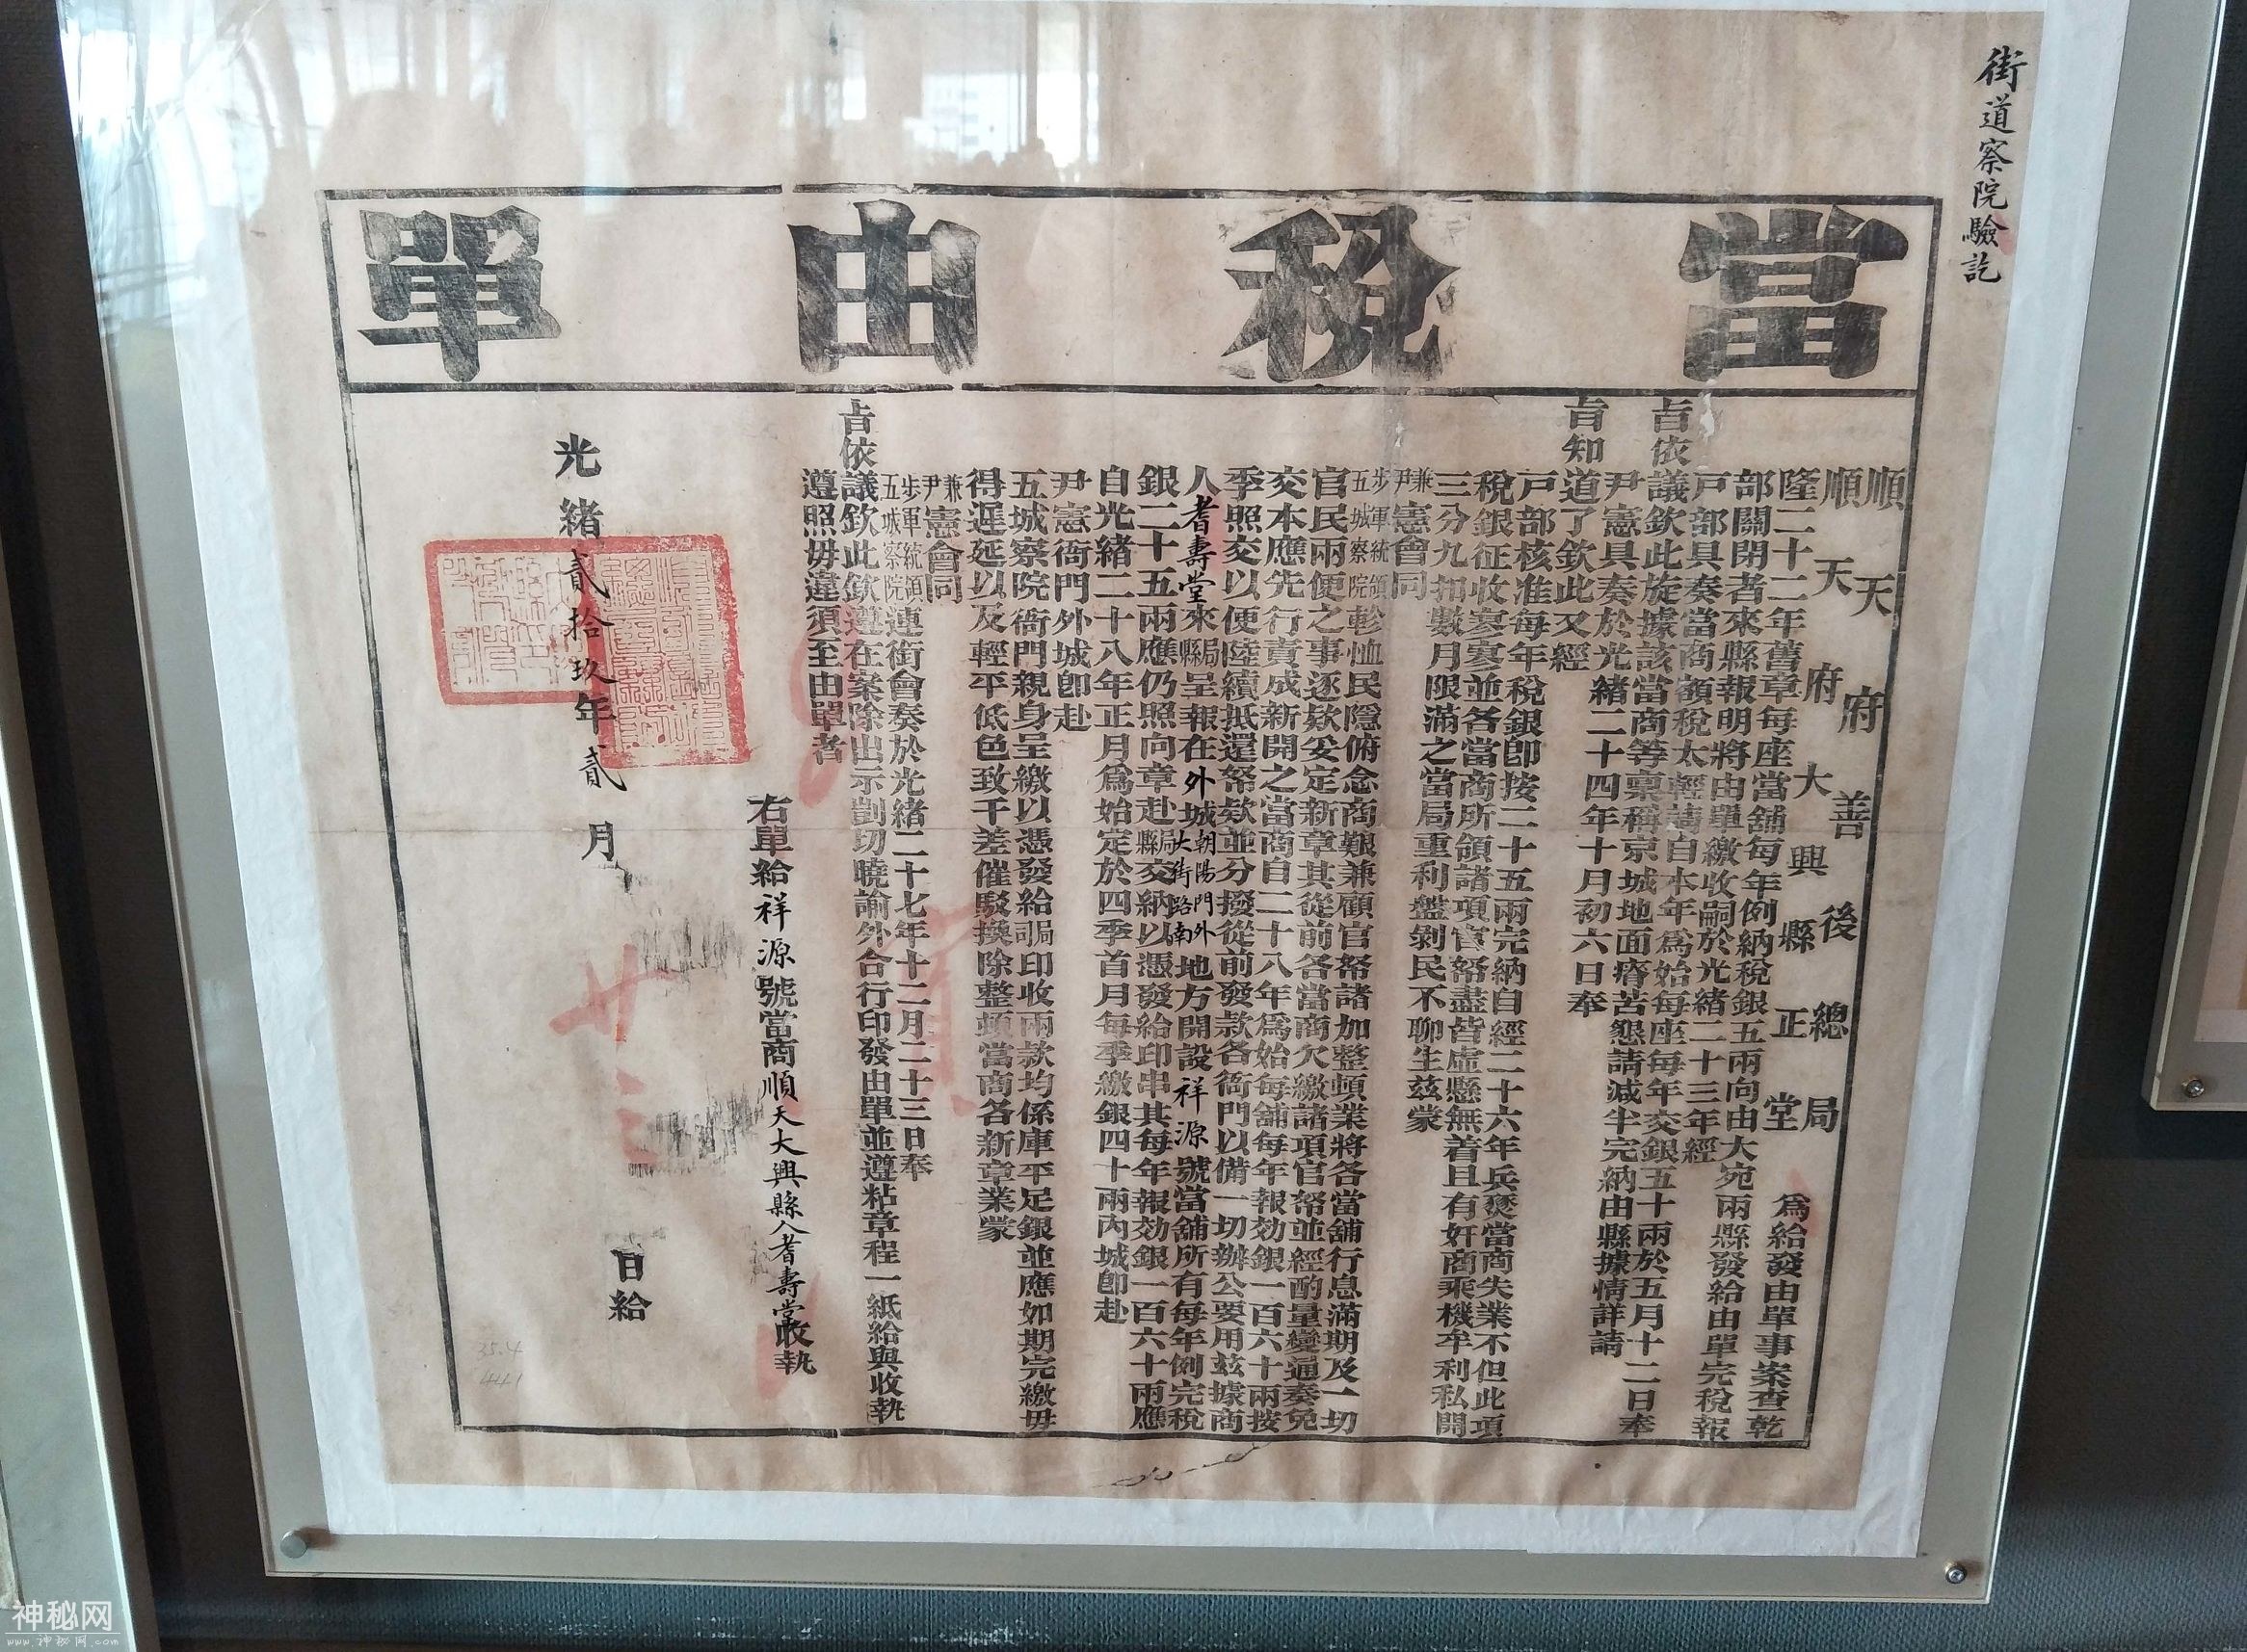 街道察院驗訖
當稅由單
順天府善後總局
順天府大興縣正堂
爲給發由單事案查乾
隆二十二年舊章每座當舖每年例納稅銀五兩向由大宛兩縣發給由單完稅報
部關閉者來縣報明將由單繳收嗣於光緒二十三年經
戶部具奏當商額稅太輕請自本年爲始每座每年交銀五十兩於五月十二日奉
旨依議欽此旋據該當商等稟稱京城地面瘠苦懇請減半完納由縣據情詳請
尹憲具奏於光緒二十四年十月初六日奉
旨知道了欽此又經
戶部核准每年稅銀卽按二十五兩完納自經二十六年兵燹當商失業不但此項
稅銀征收寥寥並各當商所領諸項官帑盡皆虛懸無着且有奸商乘機牟利私開
三分九扣數月限滿之當局重利盤剝民不聊生茲蒙
兼尹憲會同
步軍統領五城察院軫恤民隱俯念商艱兼顧官帑諸加整頓業將各當舖行息滿期及一切
官民兩便之事逐欵妥定新章其從前各當商欠繳諸項官帑並經酌量變通奏免
交本應先行責成新開之當商自二十八年爲始每舖每年報効銀一百六十兩按
季照交以便陸續抵還帑欵並分撥從前發款各衙門以備一切辦公要用茲據商
人耆壽堂來局縣呈報在外城朝陽門外大街路南地方開設祥源號當舖所有每年例完稅
銀二十五兩應仍照向章赴局縣交納以憑發給印串其每年報効銀一百六十兩應
自光緒二十八年正月爲始定於四季首月每季繳銀四十兩內城卽赴
尹憲衙門外城卽赴
五城察院衙門親身呈繳以憑發給局印收兩款均係庫平足銀並應如期完繳毋
得遲延以及輕平低色致干差催駁換除整頓當商各新章業蒙
兼尹憲會同
步軍統領五城察院連銜會奏於光緒二十七年十二月二十三日奉
旨依議欽此欽遵在案除出示剴切曉諭外合行印發由單並遵粘章程一紙給與收執
遵照毋違須至由單者
右單給祥源號當商順天大興縣人耆壽堂收執
光緒貳拾玖年貳月 日給
廿三
35.4
44.1
神秘网
www.神秘网.com